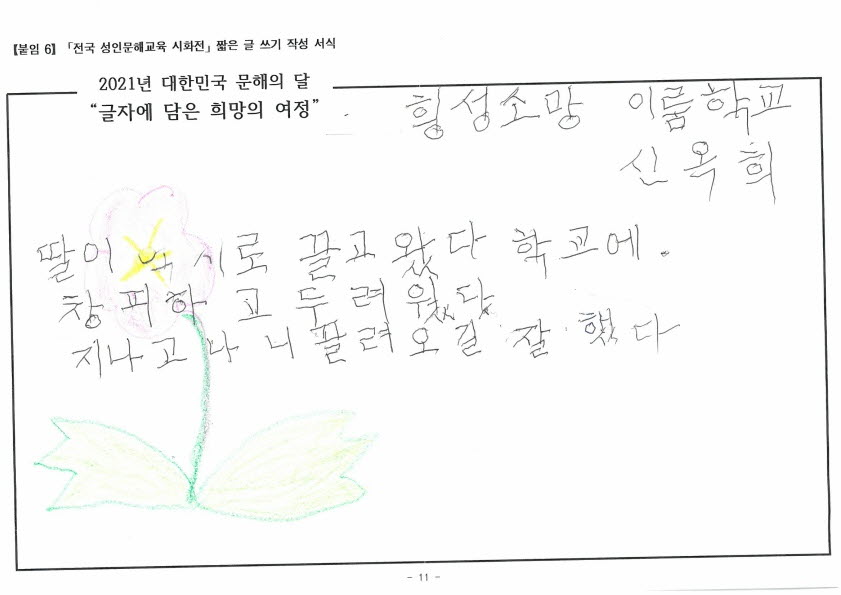 【붙임 6】「전국 성인문해교육 시화전」 짧은 글 쓰기 작성 서식
2021년 대한민국 문해의 달
“글자에 담은 희망의 여정”
횡성소망 이룸학교
신옥희
딸이 억시로 끌고 왔다 학교에.
창피하고 두려웠다
지나고 나니 끌려오길 잘 했다
- 11 -